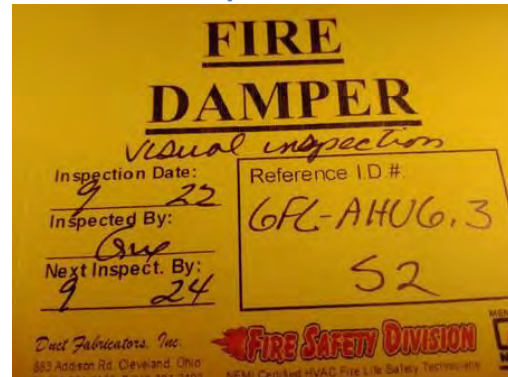 FIRE
DAMPER
visual inspection
Inspection Date:
9 22
Inspected By:
Next Inspect. By:
9 24
Reference I.D #.
6FL-AHU6.3
52
Duct Fabricators, Inc.
883 Addison Rd. Cleveland, Ohio
FIRE SAFETY DIVISION
NEMI Certified HVAC Fire Life Safety